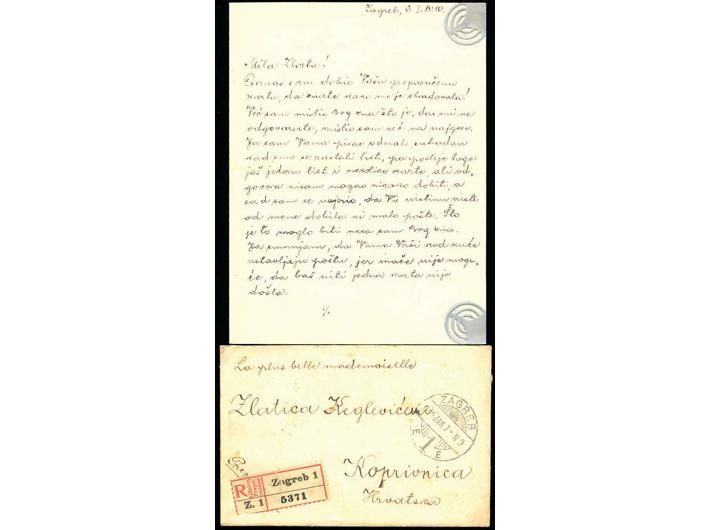 Zagreb, 6. I. 1910.
Mila Zlata!
Danas sam dobio Vašu preporučenu
kartu, da znate kako me je obradovala!
Već sam mislio Bog zna što je, da mi ne
odgovarate, mislio sam već na najgore.
Ja sam Vama pisao odmah
kad smo se rastali list, pa poslije toga
još jedan list i nekoliko karte, ali od-
govora nisam mogao nikako dobiti, a
sad sam se uvjerio, da Vi uistinu niste
od mene dobila ni malo pošte. Što
je to moglo biti ne sam Bog zna.
Ja sumnjam, da Vama Vaši kod kuće
ustavljaju poštu, jer inače nije mogu-
će, da baš niti jedna karta nije
došla.
1/.
La plus belle mademoiselle
Zlatica Keglevićeva
Koprivnica
Hrvatska
ZAGREB
JAN. 7
1
E E
R
Zagreb 1
Z. 1
5371